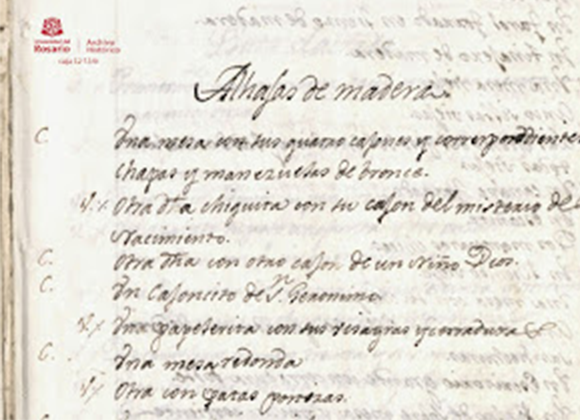 Universidad del
Rosario
Archivo
Histórico
caja 12-13 r
Alhajas de madera.
C. Una mesa con sus quatro cajones y correspondientes
chapas y manezuelas de bronce.
V. Otra dha chiquita con su cajon del misterio del
Nacimiento.
C. Otra dha con otro cajon de un Niño Dios.
C. Un Cajoncito de Sn. Geronimo
V. Una papelerita con sus visagras y cerradura
C. Una mesa redonda
V. Otra con patas